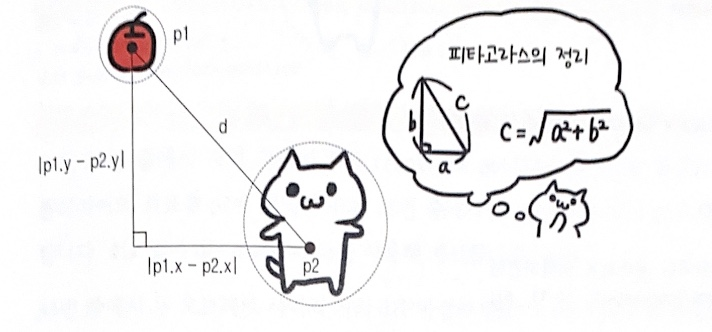 p1
d
|p1.y - p2.y|
|p1.x - p2.x|
p2
피타고라스의 정리
b
c
a
C=√a²+b²